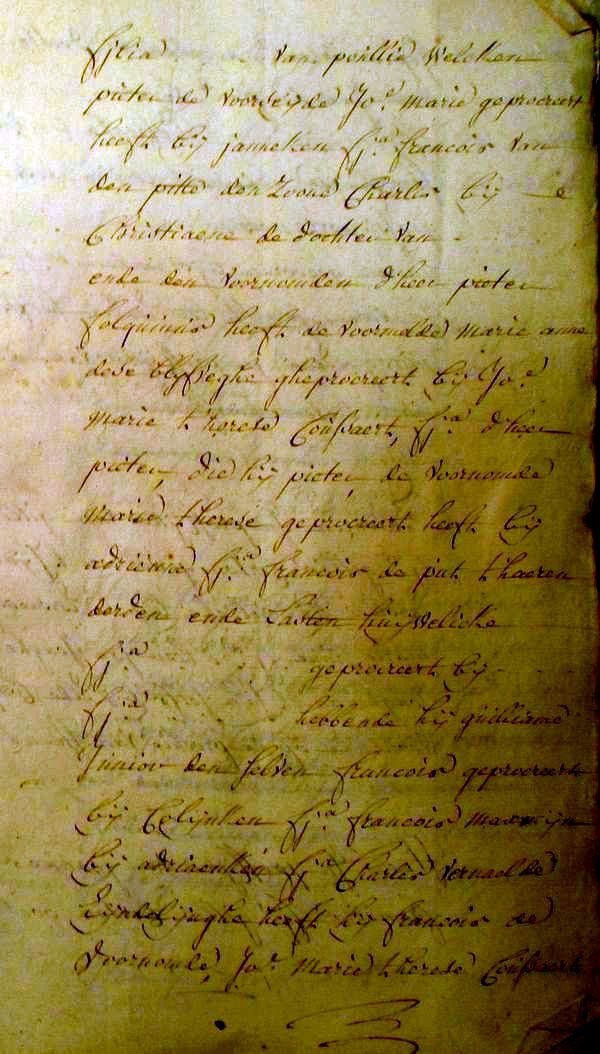 filia van poúllie welcken
pieter de voorseijde Jo.e marie geprocreert
heeft bij janneken f.a francois van
den pitte den zoone Charles bij
Christiaene de dochter van
ende den voornomden d'heer pieter
folquinus heeft de voormelde marie anne
dese gheprocreert bij Jo.e
marie therese Coússaert, f.a d'heer
pieter, die hij pieter de voornomde
marie therese geprocreert heeft bij
adrienne f.a francois de pút t'haeren
derden ende Lasten húijwelicke
f.a geprocreert bij
f.a hebbende hij guilliame
Junior den selven francois geprocreert
bij Colijnken f.a francois
bij adriaenken f.a Charles vernaelde
Eijndelijnghe heeft hij francois de
voornomde, Jo.e Marie therese Coússaert